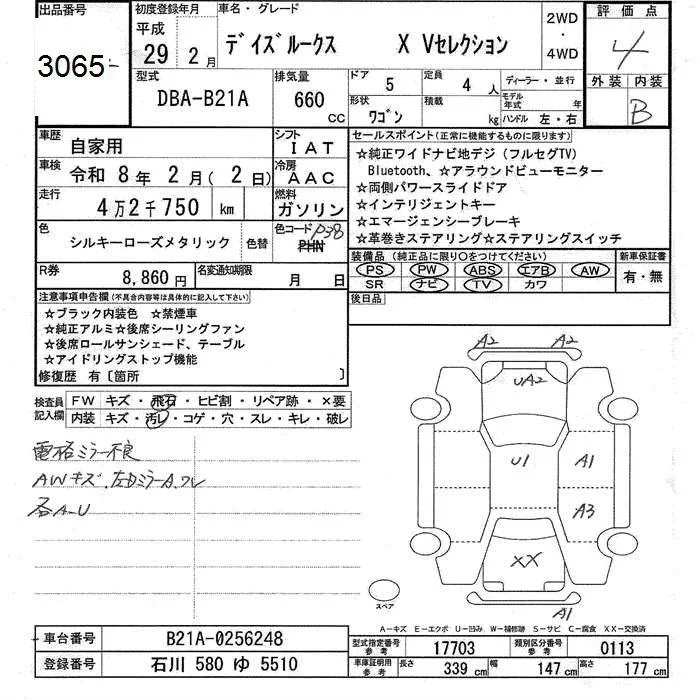 出品番号
3065
初度登録年月
平成
29 2 月
車名・グレード
デイズルークス X Vセレクション
2WD
・
4WD
評価点
4
外装 内装
B
型式
DBA-B21A
排気量
660
CC
ドア
5
定員
4 人
形状
ワゴン
積載
kg
ディーラー・並行
モデル年式
年
ハンドル 左・右
車歴
自家用
シフト
IAT
車検
令和 8 年 2 月( 2 日)
冷房
AAC
走行
4万2千750 km
燃料
ガソリン
色
シルキーローズメタリック
色替
色コード
PHN
R券
8,860 円
名変通知期限
月 日
セールスポイント(正常に機能するものに限ります)
☆純正ワイドナビ地デジ (フルセグTV)
Bluetooth、☆アラウンドビューモニター
☆両側パワースライドドア
☆インテリジェントキー
☆エマージェンシーブレーキ
☆革巻きステアリング☆ステアリングスイッチ
装備品 (純正品に限り○をつけてください)
PS PW ABS エアB AW
SR ナビ TV カワ
新車保証書
有・無
後日品
注意事項申告欄(不具合内容等は具体的に記入して下さい)
☆ブラック内装色 ☆禁煙車
☆純正アルミ☆後席シーリングファン
☆後席ロールサンシェード、テーブル
☆アイドリングストップ機能
修復歴 有〔箇所 〕
検査員記入欄
FW キズ・飛石・ヒビ割・リペア跡・×要
内装 キズ・汚レ・コゲ・穴・スレ・キレ・破レ
電格ミラー不良
AWキズ、左Dミラー A.ワレ
各A-U
A2 A2
UA2
U1 A1
A3
XX
A1
スペア
A-キズ E-エクボ U-凹み W-補修跡 S-サビ C-腐食 XX-交換済
車台番号
B21A-0256248
登録番号
石川 580 ゆ 5510
型式指定番号
参考
17703
類別区分番号
参考
0113
車庫証明用
参考
長さ 339 cm 幅 147 cm 高さ 177 cm